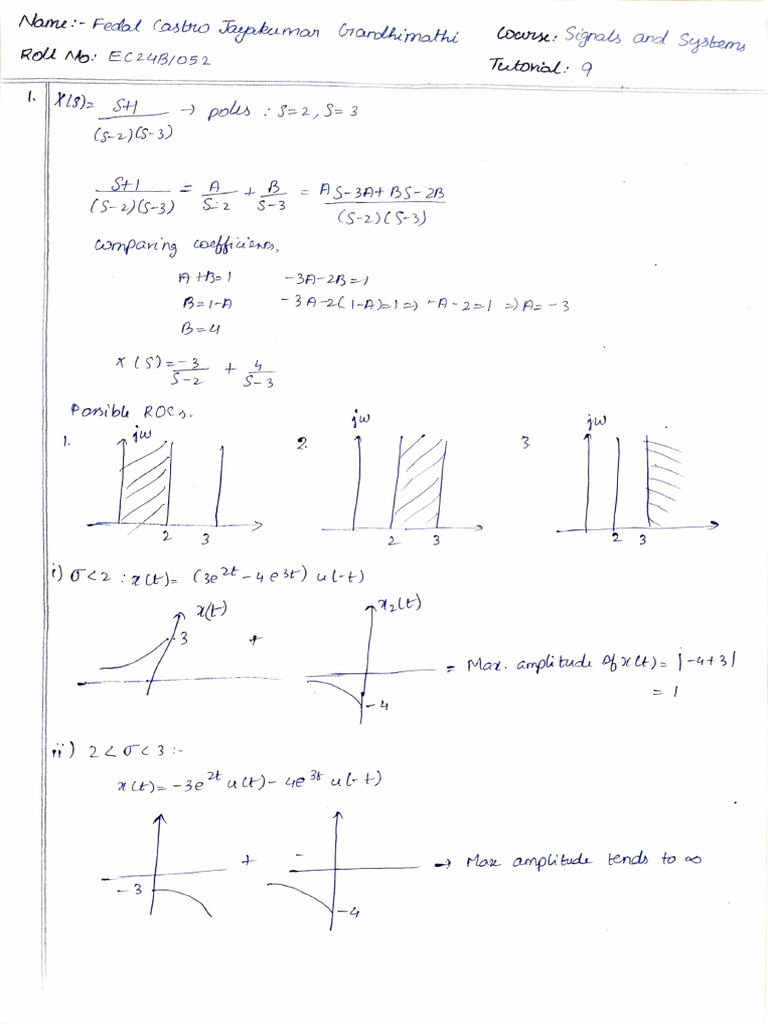 Name:- Fedal Castro Jayakumar Gandhimathi Course: Signals and Systems
Roll No: EC24B1052 Tutorial: 9
1. X(S)= S+1/(S-2)(S-3) → poles : S=2, S=3
S+1/(S-2)(S-3) = A/S-2 + B/S-3 = AS-3A+BS-2B/(S-2)(S-3)
Comparing coefficients,
A+B=1 -3A-2B=1
B=1-A -3A-2(1-A)=1=> -A-2=1 =>A=-3
B=4
X(S)=-3/S-2 + 4/S-3
Possible ROCs.
1. jω 2. jω 3. jω
2 3 2 3 2 3
i) σ<2 : x(t)= (3e^2t-4e^3t) u(-t)
x(t) x2(t)
3 + -4 = Max. amplitude of x(t) = |-4+3|
= 1
ii) 2<σ<3 :-
x(t)= -3e^2t u(t)-4e^3t u(-t)
-3 + - -4 → Max amplitude tends to ∞